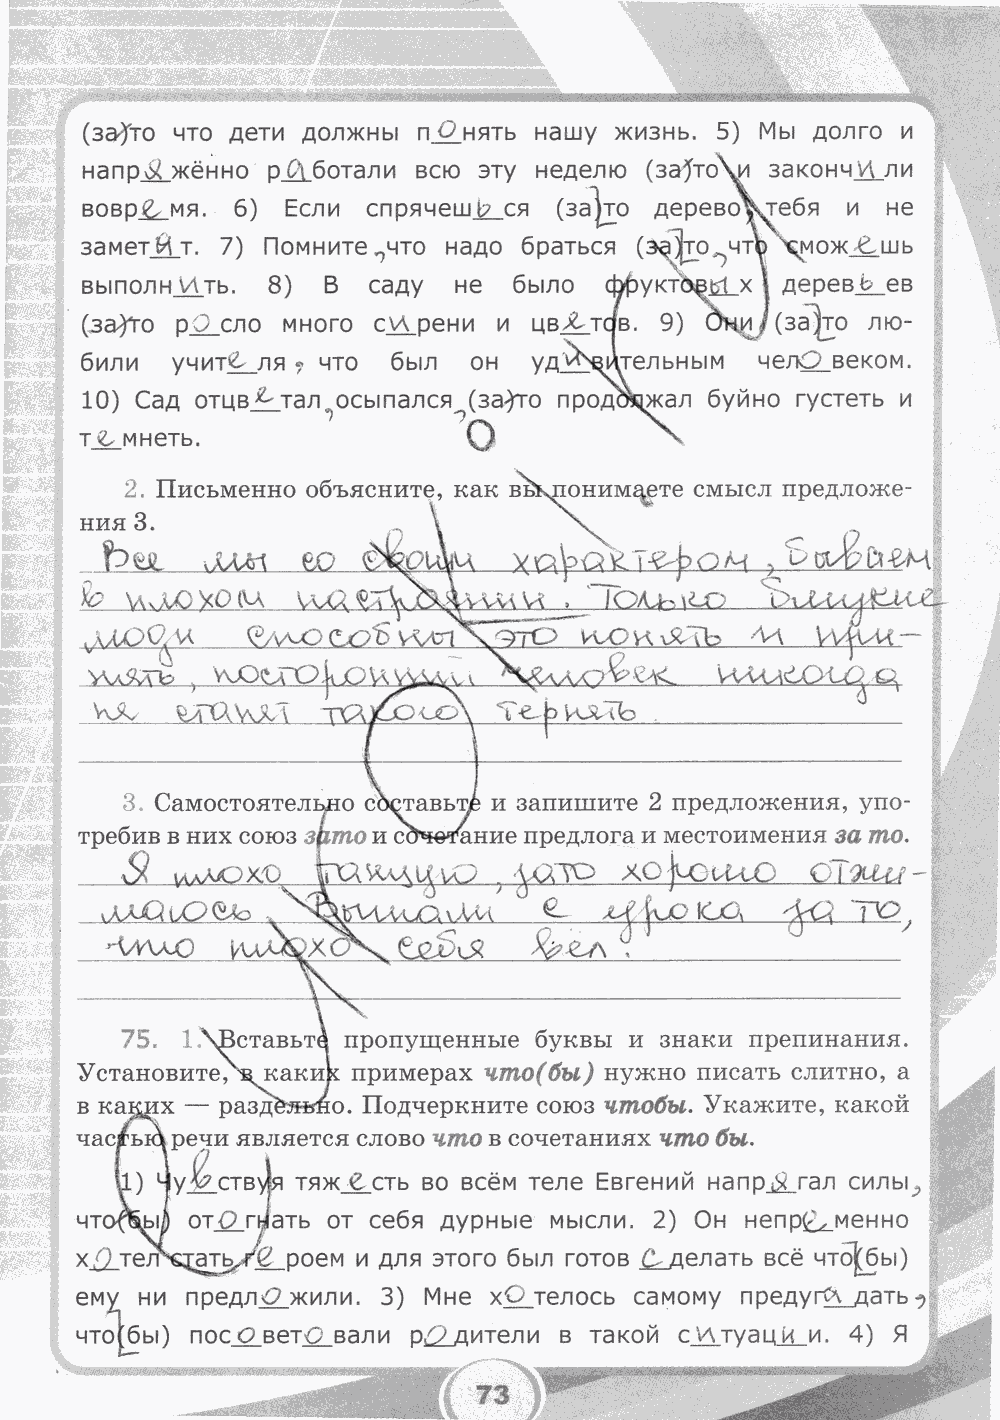 (за)то что дети должны понять нашу жизнь. 5) Мы долго и
напряжённо работали всю эту неделю (за)то и закончили
вовремя. 6) Если спрячешься (за)то дерево, тебя и не
заметит. 7) Помните, что надо браться (за)то, что сможешь
выполнить. 8) В саду не было фруктовых деревьев
(за)то росло много сирени и цветов. 9) Они (за)то лю-
били учителя, что был он удивительным человеком.
10) Сад отцветал, осыпался, (за)то продолжал буйно густеть и
темнеть.
2. Письменно объясните, как вы понимаете смысл предложе-
ния 3.
Все мы со своим характером, бываем
в плохом настраянии. Только близкие
люди способны это понять и при-
нять, посторонний человек никогда
не станет такого терпеть.
3. Самостоятельно составьте и запишите 2 предложения, упо-
требив в них союз зато и сочетание предлога и местоимения за то.
Я плохо танцую, зато хорошо отжи-
маюсь. Выгнали с урока за то,
что плохо себя вёл.
75. 1. Вставьте пропущенные буквы и знаки препинания.
Установите, в каких примерах что(бы) нужно писать слитно, а
в каких — раздельно. Подчеркните союз чтобы. Укажите, какой
частью речи является слово что в сочетаниях что бы.
1) Чувствуя тяжесть во всём теле Евгений напрягал силы,
что(бы) отогнать от себя дурные мысли. 2) Он непременно
хотел стать героем и для этого был готов сделать всё что(бы)
ему ни предложили. 3) Мне хотелось самому предугадать,
что(бы) посоветовали родители в такой ситуации. 4) Я
73